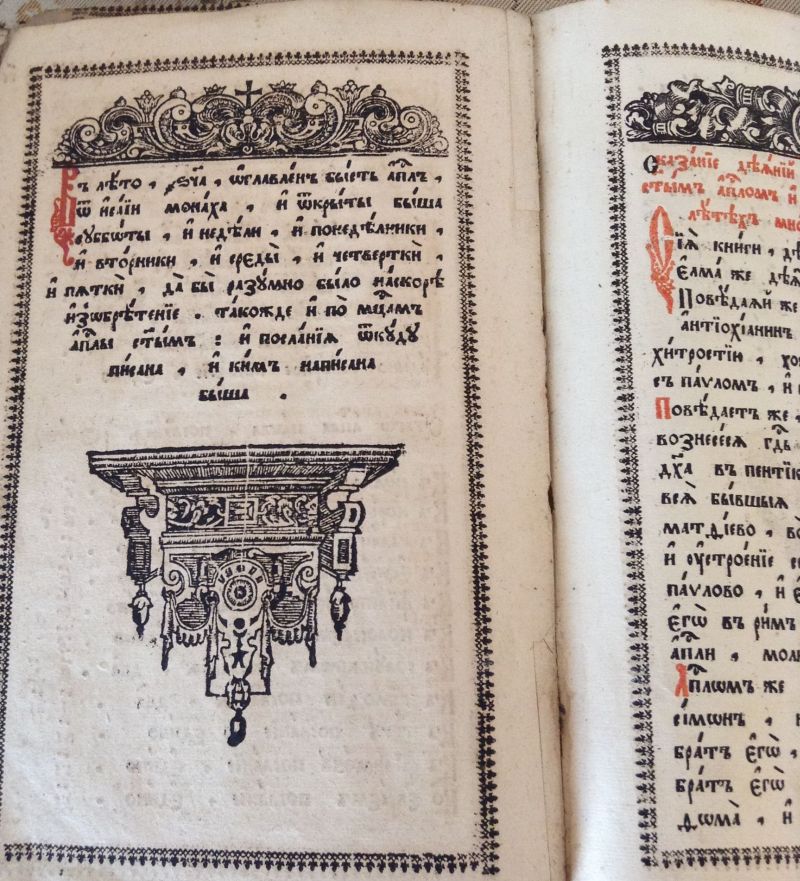 Въ лѣто , ҂ѕ҃ча , ѡ҆главле́н бы́сть а҆п҇лъ ,
Ѿ и҆са́їи мона́ха , и҆ ѿкры́ты бы́ша
сꙋббѡ́ты , и҆ недѣ́ли , и҆ понедѣ́лники ,
и҆ вто́рники , и҆ среды̀ , и҆ четверткѝ ,
и҆ пѧткѝ , да̀ бы̀ разꙋ́мно бы́ло на́скорѣ
и҆з̾ѡбрѣ́тенїе . та́кожде и҆ по̀ мц҇амъ
а҆п҇лы ст҃ы́мъ : и҆ посла́нїѧ ѿкꙋ́дꙋ
пи́сана , и҆ ки́мъ напи́сана
бы́ша .
Сказа́нїе дѣѧ́нїй
ст҃ы́мъ а҆п҇лом и҆
лꙋ́тѣхъ
Сїѧ̀ кни́ги ,
Е҆лма́ же
Повѣ́даѧй же
а҆нтїо́хїанин
хи́трости ,
съ па́ѵлом , и҆
Повѣ́даетъ же ,
вознесе́сѧ гд҇ь
дх҃а въ
всѧ̀ бы́вшыѧ
матѳі́ево ,
и҆ ᲂу҆строе́нїе
па́ѵлово , и҆
є҆гѡ̀ въ ри́мъ
а҆п҇ли ,
А҆п҇лѡмъ же
сі́мѡнъ ,
бра́тъ є҆гѡ̀ ,
бра́тъ є҆гѡ̀
ѳѡма̀ , и҆